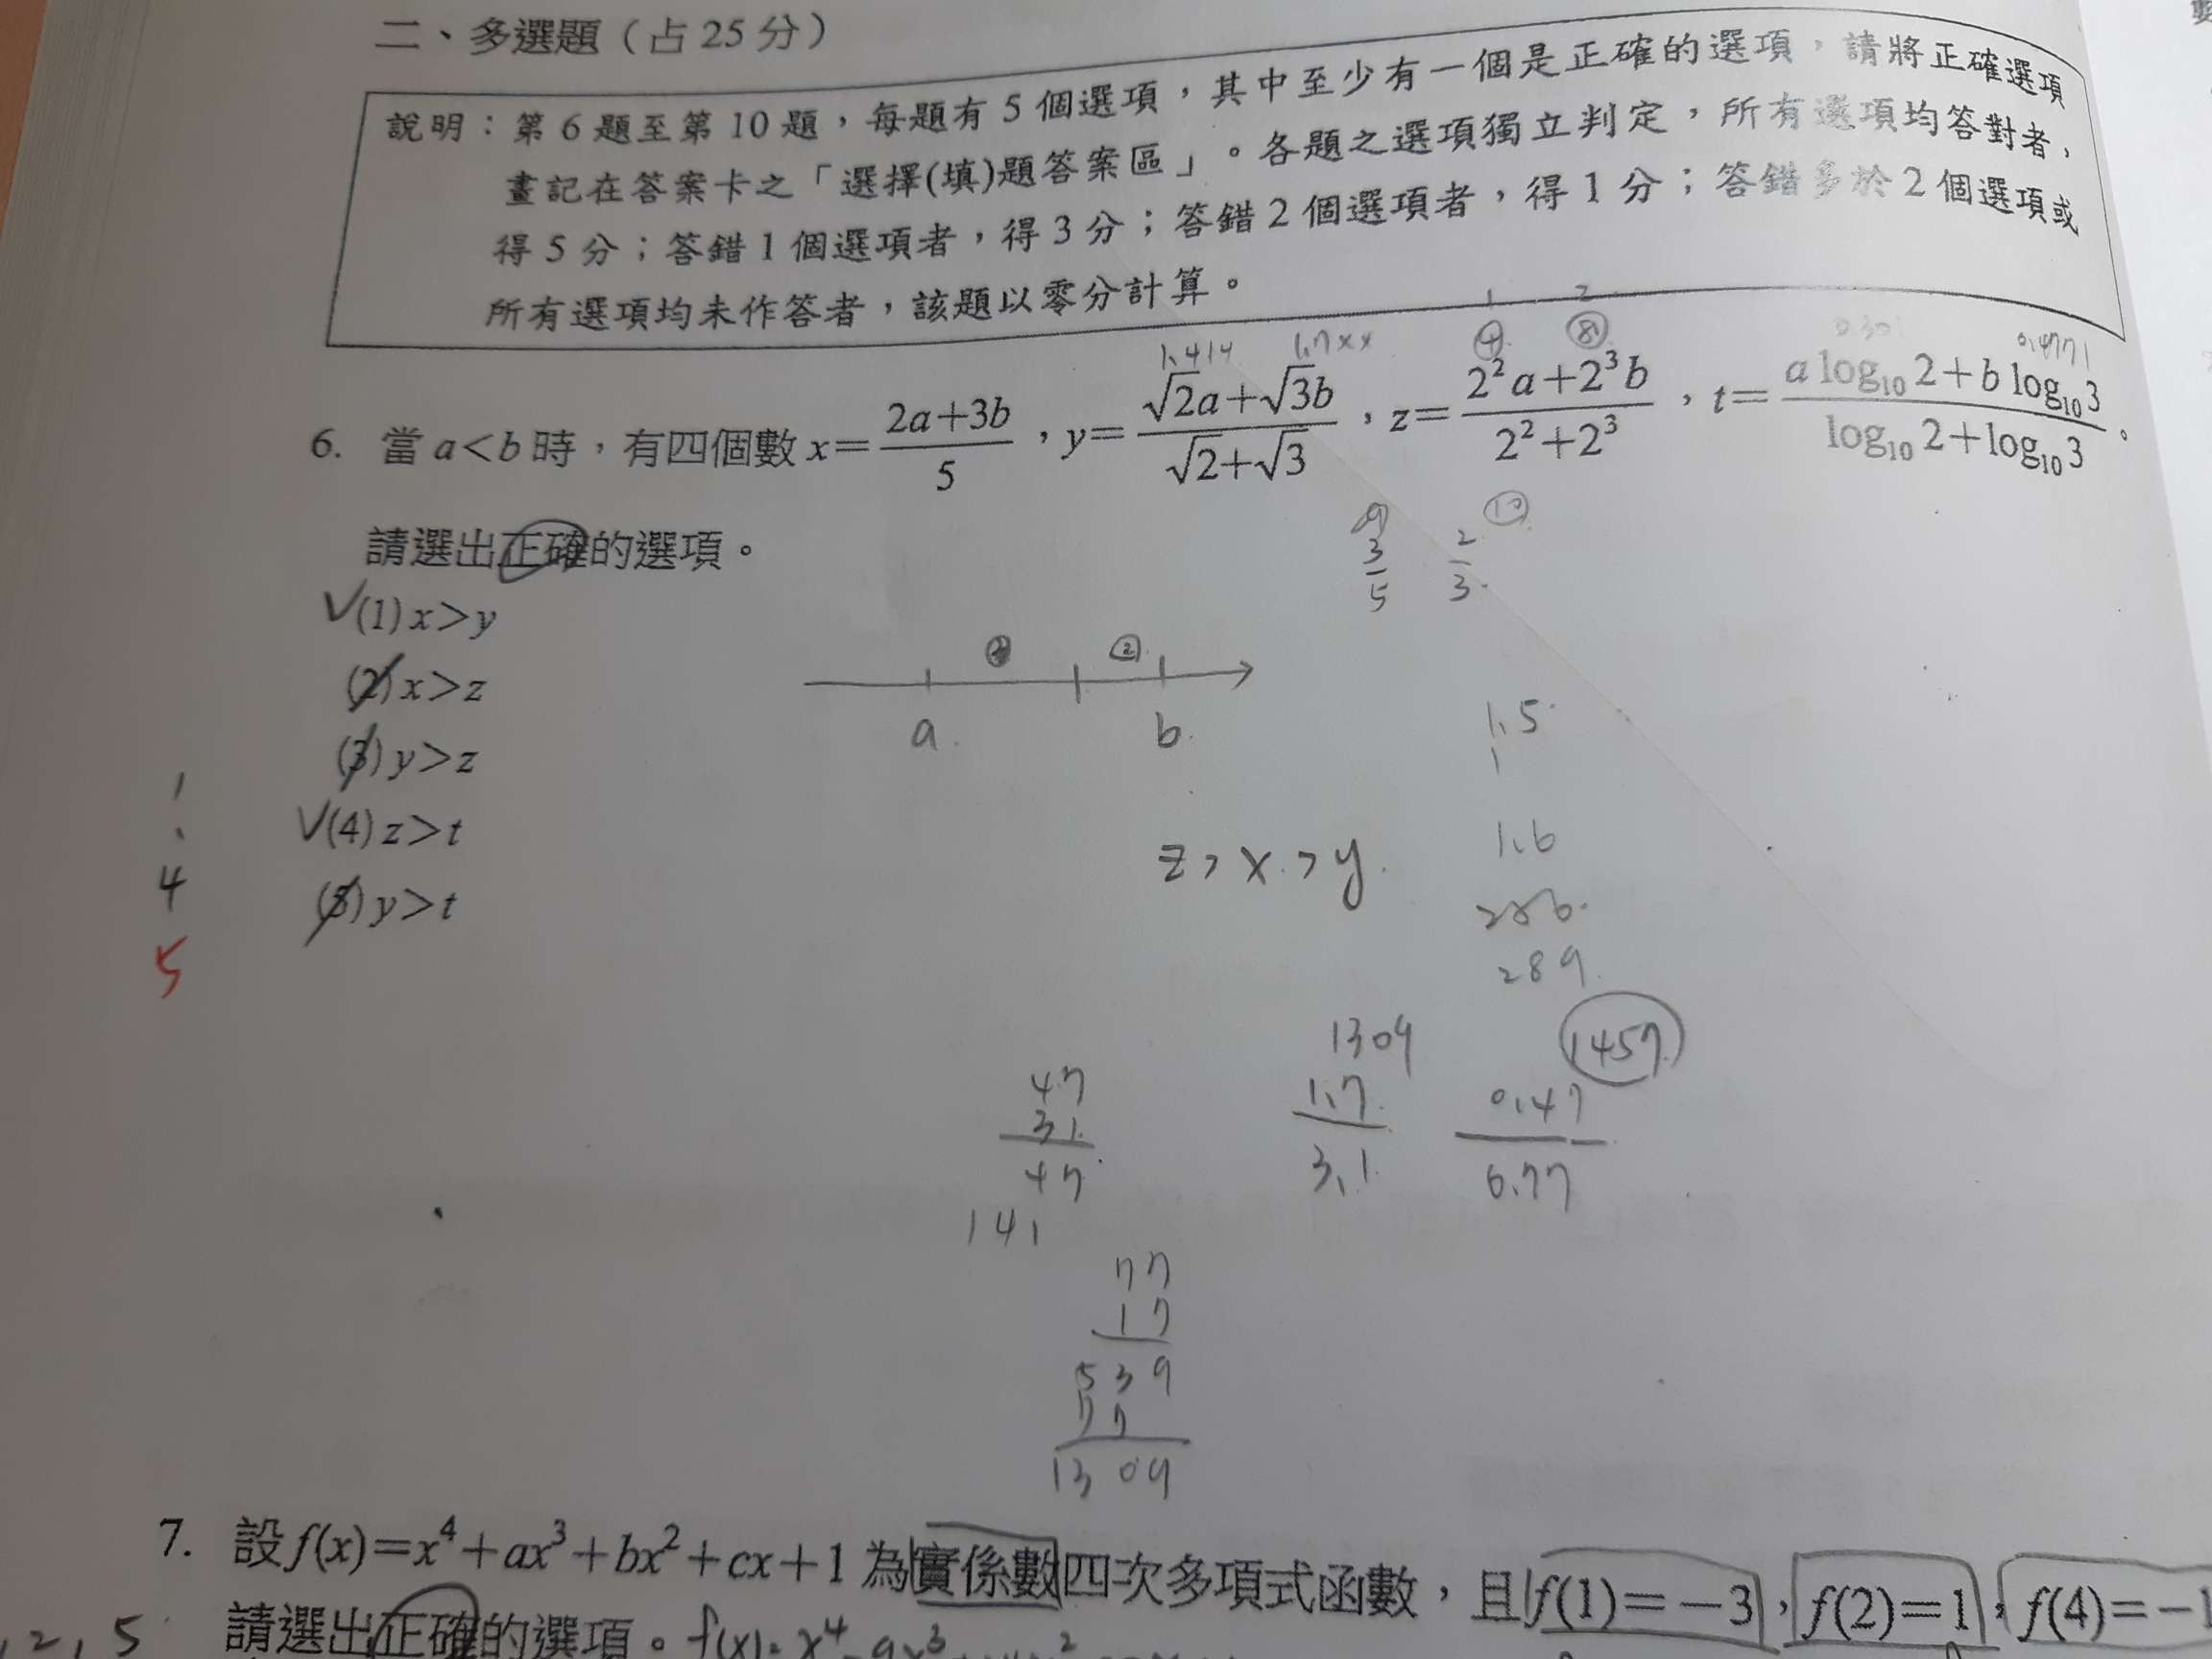 二、多選題（占 25 分）
說明：第 6 題至第 10 題，每題有 5 個選項，其中至少有一個是正確的選項，請將正確選項
畫記在答案卡之「選擇(填)題答案區」。各題之選項獨立判定，所有選項均答對者，
得 5 分；答錯 1 個選項者，得 3 分；答錯 2 個選項者，得 1 分；答錯多於 2 個選項或
所有選項均未作答者，該題以零分計算。
1 2
1.414 1.7xx ④ ⑧ 0.301 0.4771
6. 當 a<b 時，有四個數 x=\frac{2a+3b}{5}，y=\frac{√2a+√3b}{√2+√3}，z=\frac{2²a+2³b}{2²+2³}，t=\frac{a log₁₀2+b log₁₀3}{log₁₀2+log₁₀3}。
⑫
3/5 2/3
請選出正確的選項。
✓(1) x>y
(2) x>z
② 
(3) y>z
a b
1.5
1
1
✓(4) z>t
1.6
z > x > y
4
(5) y>t
5
289
1309 1457
47 1.7 0.47
31 3.1
47
141
77
17
539
77
1309
7. 設 f(x)=x⁴+ax³+bx²+cx+1 為實係數四次多項式函數，且 f(1)=−3，f(2)=1，f(4)=−1
2, 5 請選出正確的選項。